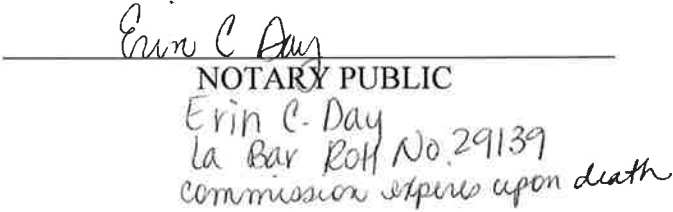 Erin C Day
NOTARY PUBLIC
Erin C. Day
La Bar Roll No. 29139
commission expires upon death